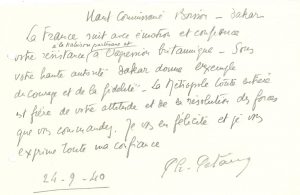 Haut Commissaire Boisson - Dakar
La France suit avec émotion et confiance
à la trahison partisane et
votre résistance à l'agression britannique - Sous
votre haute autorité Dakar donne l'exemple
du courage et de la fidélité - La Métropole toute entière
est fière de votre attitude et de la résolution des forces
que vous commandez. Je vous en félicite et je vous
exprime toute ma confiance
Ph. Pétain
24-9-40